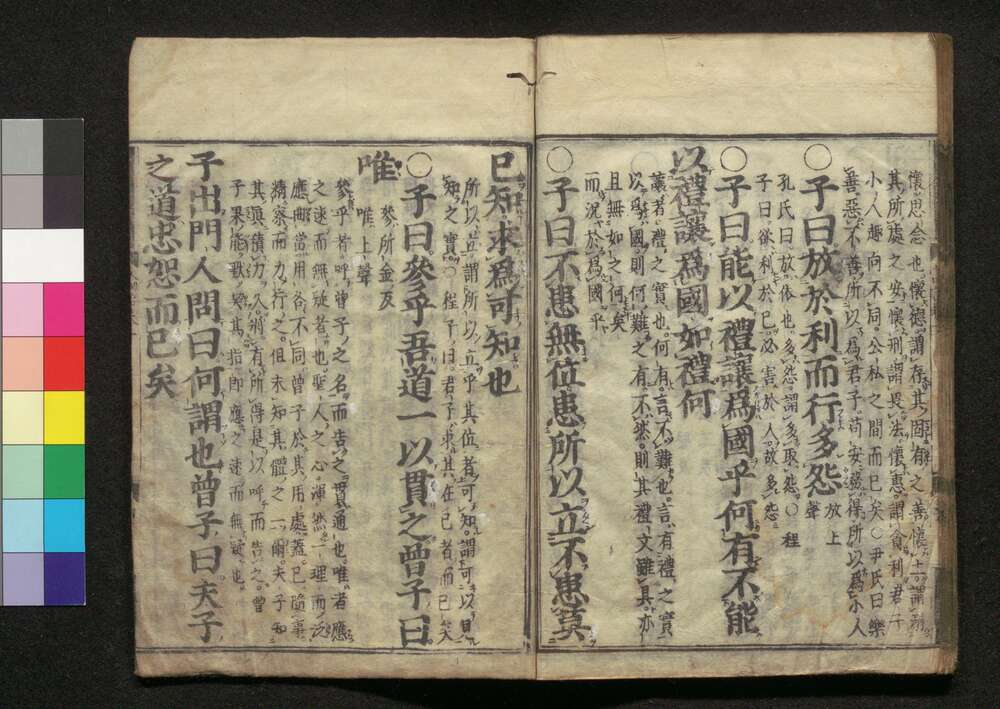 懷思念也懷德謂存其固有之善懷土謂溺
其所處之安懷刑謂畏法懷惠謂貪利君子
小人趣向不同公私之間而已矣○尹氏曰樂
善惡不善所以爲君子苟安務得所以爲小人
○子曰放於利而行多怨
放上
聲
孔氏曰放依也多怨謂多取怨○程
子曰欲利於己必害於人故多怨
○子曰能以禮讓爲國乎何有不能
以禮讓爲國如禮何
讓者禮之實也何有言不難也言有禮之實
以爲國則何難之有不然則其禮文雖具亦
且無如之何矣
而況於爲國乎
○子曰不患無位患所以立不患莫
已知求爲可知也
所以立謂所以立乎其位者可知謂可以見
知之實○程子曰君子求其在己者而已矣
○子曰參乎吾道一以貫之曾子曰
唯
參所金反
唯上聲
參乎者呼曾子之名而告之貫通也唯者應
之速而無疑者也聖人之心渾然一理而泛
應曲當用各不同曾子於其用處蓋已隨事
精察而力行之但未知其體之一爾夫子知
其眞積力久將有所得是以呼而告之曾
子果能默契其指即應之速而無疑也
子出門人問曰何謂也曾子曰夫子
之道忠恕而已矣